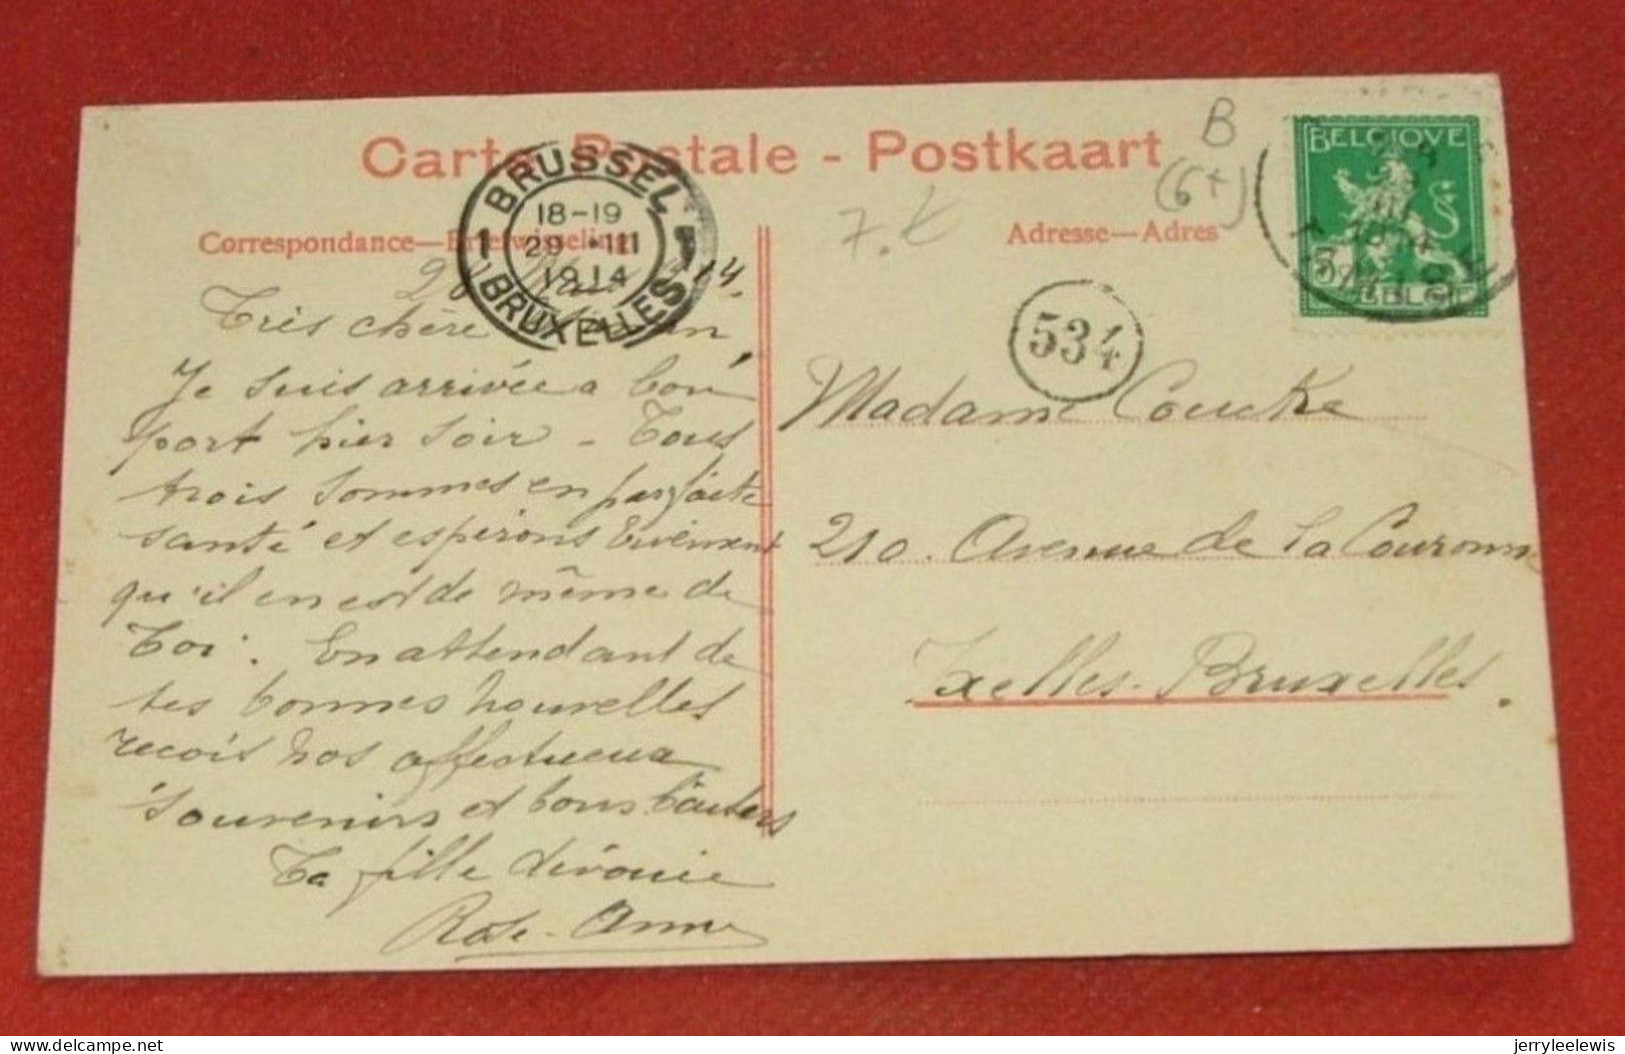 Carte Postale - Postkaart
Correspondance—Briefwisseling
Adresse—Adres
BRUSSEL
18-19
29 -III
1914
1 1
BRUXELLES
B
(6+)
BELGIQUE
5
BELGIË
534
14.
Très chère
Je suis arrivée a bon
port hier soir - Tous
trois sommes en parfaite
santé et espérons vivement
qu'il en est de même de
Toi. En attendant de
tes bonnes nouvelles
reçois nos affectueux
souvenirs et bons baisers
Ta fille dévouée
Rose-Anna
Madame Coucke
210. Avenue de la Couronne
Ixelles-Bruxelles.
jerryleelewis